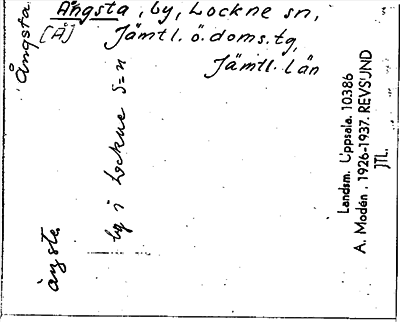 Ångsta, by, Lockne sn,
[Å] Jämtl. ö. doms. tg,
Jämtl. län
Ångsta
ångste
by i Lockne s=n
Landsm. Uppsala. 10386
A. Modén, 1926-1937. REVSUND
JTL.